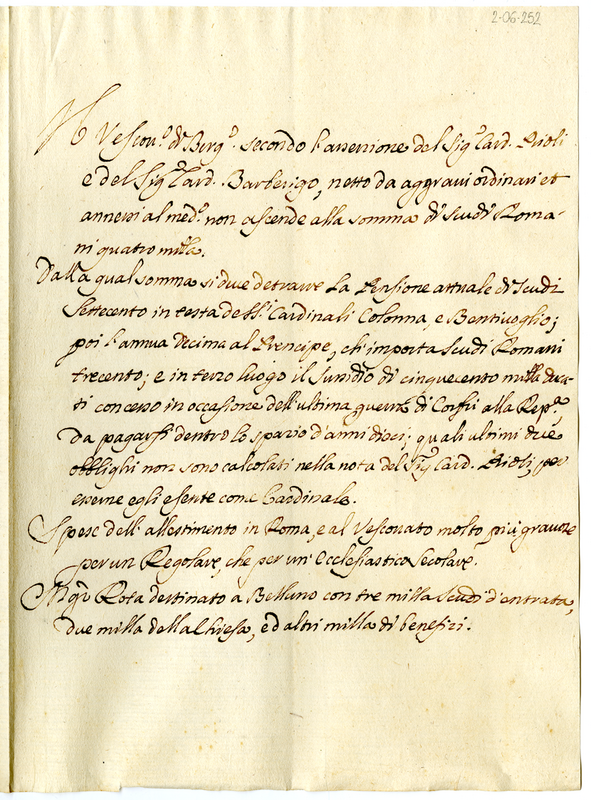 2-06-252
Il Vescov.º di Berg.º secondo l'asserzione del Sig.r Card. Prioli
e del Sig.r Card. Barberigo, netto da aggravi ordinari et
annessi al med.º non ascende alla somma di Scudi Roma-
ni quatro milla.
Dalla qual somma si due detrarre la Pensione attuale di Scudi
Settecento in testa delli Cardinali Colonna, e Bentivoglio;
poi l'annua Decima al Prencipe, ch'importa Scudi Romani
trecento; e in terzo luogo il sussidio di cinquecento milla duca-
ti concesso in occasione dell'ultima guerra di Corfù alla Rep.ca
da pagarsi dentro lo spazio d'anni dieci; quali ultimi due
obblighi non sono calcolati nella nota del Sig.r Card. Prioli, per
esserne egli esente come Cardinale.
Spese dell'allestimento in Roma, e al Vescovato molto più gravose
per un Regolare, che per un'Ecclesiastico Secolare.
Mgr. Rota destinato a Belluno con tre milla Scudi d'entrata,
due milla della Chiesa, ed altri milla di benefizi.